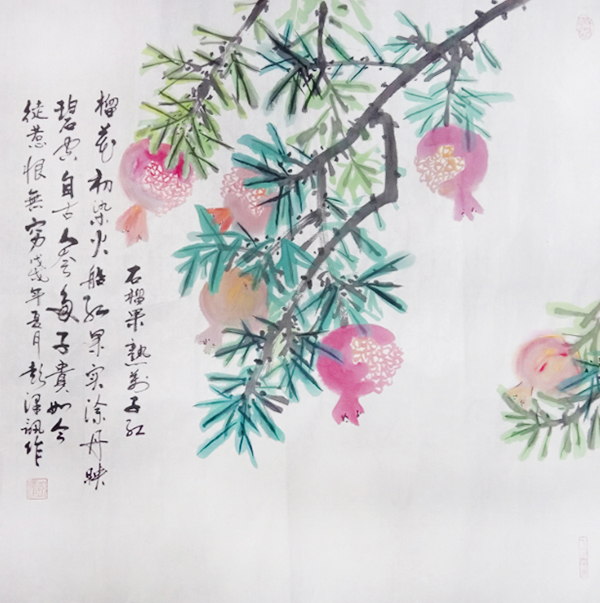 石榴果熟萬子红
榴花初染火般红果实涂丹映
碧空自古人夸多子貴如今
徒惹恨無穷戊戌年夏月彭泽作